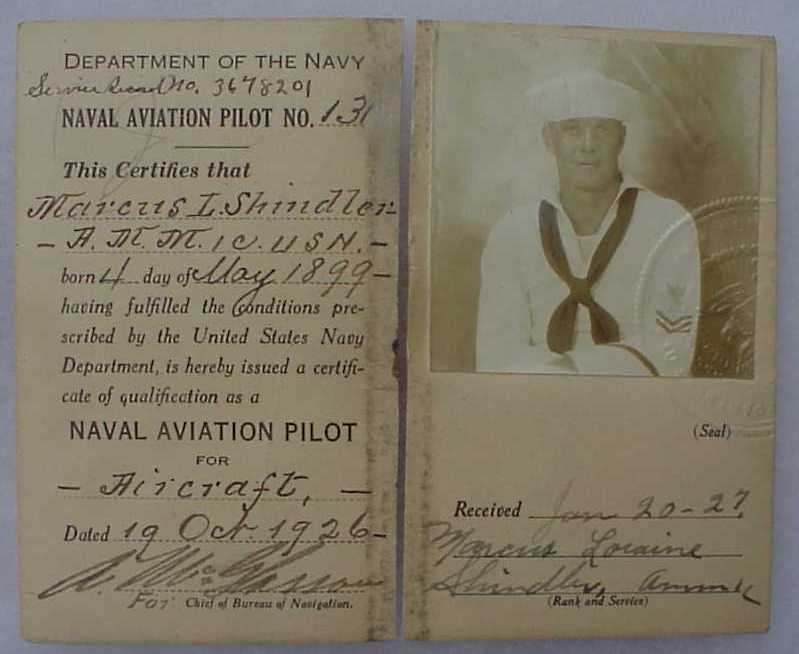 DEPARTMENT OF THE NAVY
Service Record No. 3678201
NAVAL AVIATION PILOT NO. 131
This Certifies that
Marcus L. Shindler
- A.M.M.1C. USN. -
born 4 day of May 1899 -
having fulfilled the conditions pre-
scribed by the United States Navy
Department, is hereby issued a certifi-
cate of qualification as a
NAVAL AVIATION PILOT
FOR
- Aircraft, -
Dated 19 Oct. 1926 -
For Chief of Bureau of Navigation.
(Seal)
Received Jan 20-27,
Marcus Loraine
Shindler, amm1c
(Rank and Service)